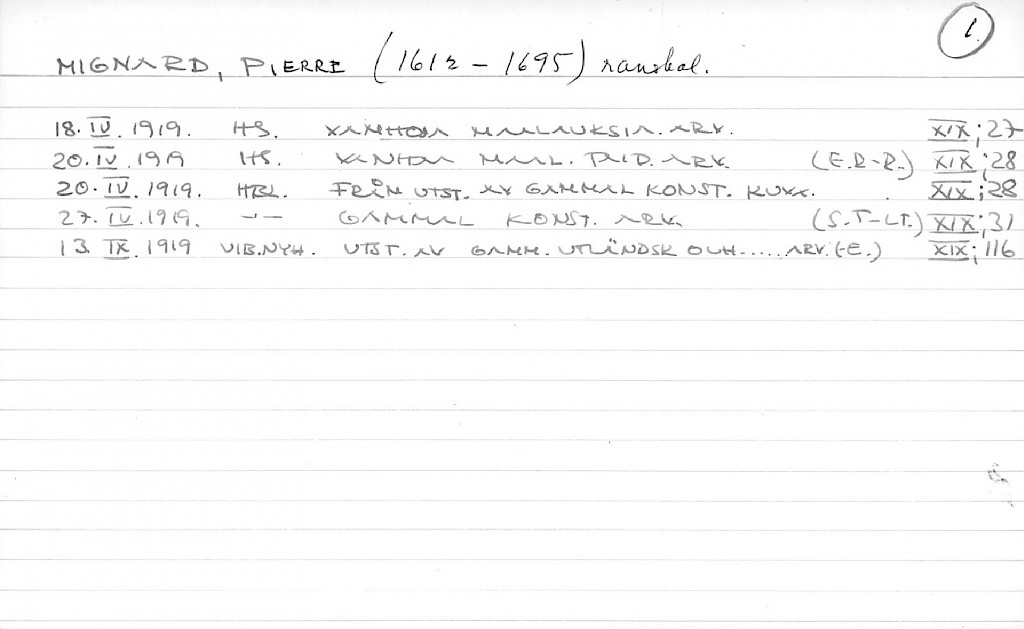 1.
MIGNARD, PIERRE (1612 – 1695) ranskal.
18. IV. 1919. HS. VANHOJA MAALAUKSIA. ARV. XIX; 27
20. IV. 1919 HS. VANHOJA MAAL. TAID. ARV. (E.R-R.) XIX; 28
20. IV. 1919. HBL. FRÅN UTST. AV GAMMAL KONST. KUVA. XIX; 28
27. IV. 1919. –"– GAMMAL KONST. ARV. (S.T-LT.) XIX; 31
13. IX. 1919 VIB.NYH. UTST. AV GAMM. UTLÄNDSK OCH...... ARV. (-E.) XIX; 116